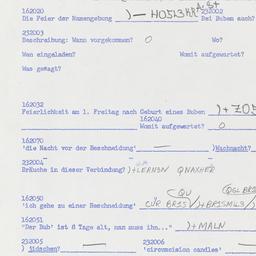 162020 )— HO5I3KR A. S+ 232002
Die Feier der Namengebung Bei Buben auch?
232003
Beschreibung: Wann vorgekommen? O Wo?
Wen eingeladen? Womit aufgewertet?
Was gesagt?
162032
Feierlichkeit am 1. Freitag nach Geburt eines Buben )+ ZO5
162040
Womit aufgewertet? O
162070
'die Nacht vor der Beschneidung' — )Wachnacht?
232004
Bräuche in dieser Verbindung? )+LERNSN QNAKHER
162050
'ich gehe zu einer Beschneidung'
162051
"Der Bub' ist 8 Tage alt, man muss ihn..." )+MALN
232005 232006
) jüdschen? — 'circumcision candles'